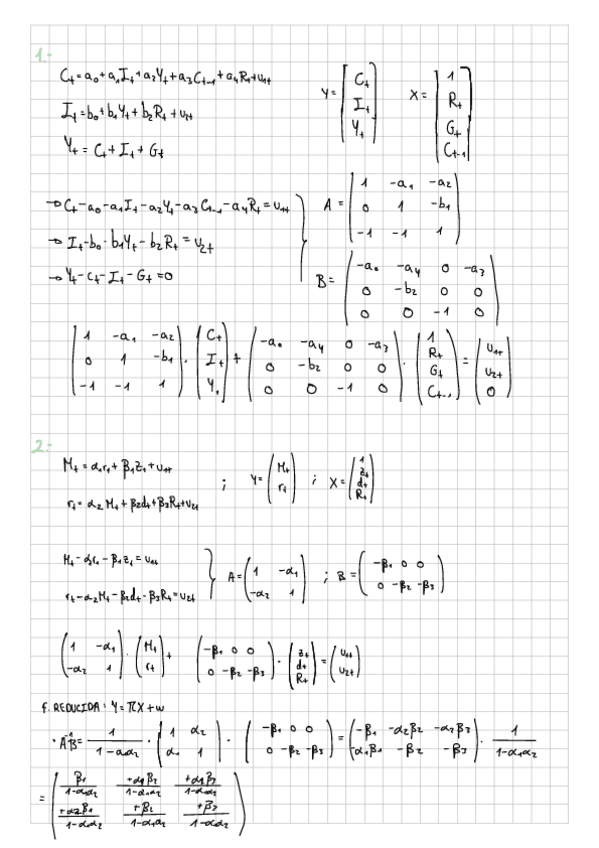 1.-
Ct = a0 + a1It + a2Yt + a3Ct-1 + a4Rt + u1t
It = b0 + b1Yt + b2Rt + u2t
Yt = Ct + It + Gt
Y = [Ct It Yt] X = [1 Rt Gt Ct-1]
→ Ct - a0 - a1It - a2Yt - a3Ct-1 - a4Rt = u1t
→ It - b0 - b1Yt - b2Rt = u2t
→ Yt - Ct - It - Gt = 0
A = (1 -a1 -a2
0 1 -b1
-1 -1 1)
B = (-a0 -a4 0 -a3
0 -b2 0 0
0 0 -1 0)
(1 -a1 -a2) · (Ct) + (-a0 -a4 0 -a3) · (1) = (u1t)
(0 1 -b1) (It) (0 -b2 0 0) (Rt) (u2t)
(-1 -1 1) (Yt) (0 0 -1 0) (Gt) (0)
(Ct-1)
2.-
Mt = α1rt + β1zt + u1t
rt = α2Mt + β2dt + β3Rt + u2t
; Y = (Mt rt) ; X = (1 zt dt Rt)
Mt - α1rt - β1zt = u1t
rt - α2Mt - β2dt - β3Rt = u2t
A = (1 -α1
-α2 1)
; B = (-β1 0 0
0 -β2 -β3)
(1 -α1) · (Mt) + (-β1 0 0) · (zt) = (u1t)
(-α2 1) (rt) (0 -β2 -β3) (dt) (u2t)
(Rt)
f. REDUCIDA: Y = πX + w
· A⁻¹B = 1/(1-α1α2) · (1 α2 / α1 1) · (-β1 0 0 / 0 -β2 -β3) = (-β1 -α2β2 -α2β3 / -α1β1 -β2 -β3) · 1/(1-α1α2)
= (β1/(1-α1α2) +α1β2/(1-α1α2) +α1β3/(1-α1α2)
+α2β1/(1-α1α2) +β2/(1-α1α2) +β3/(1-α1α2))